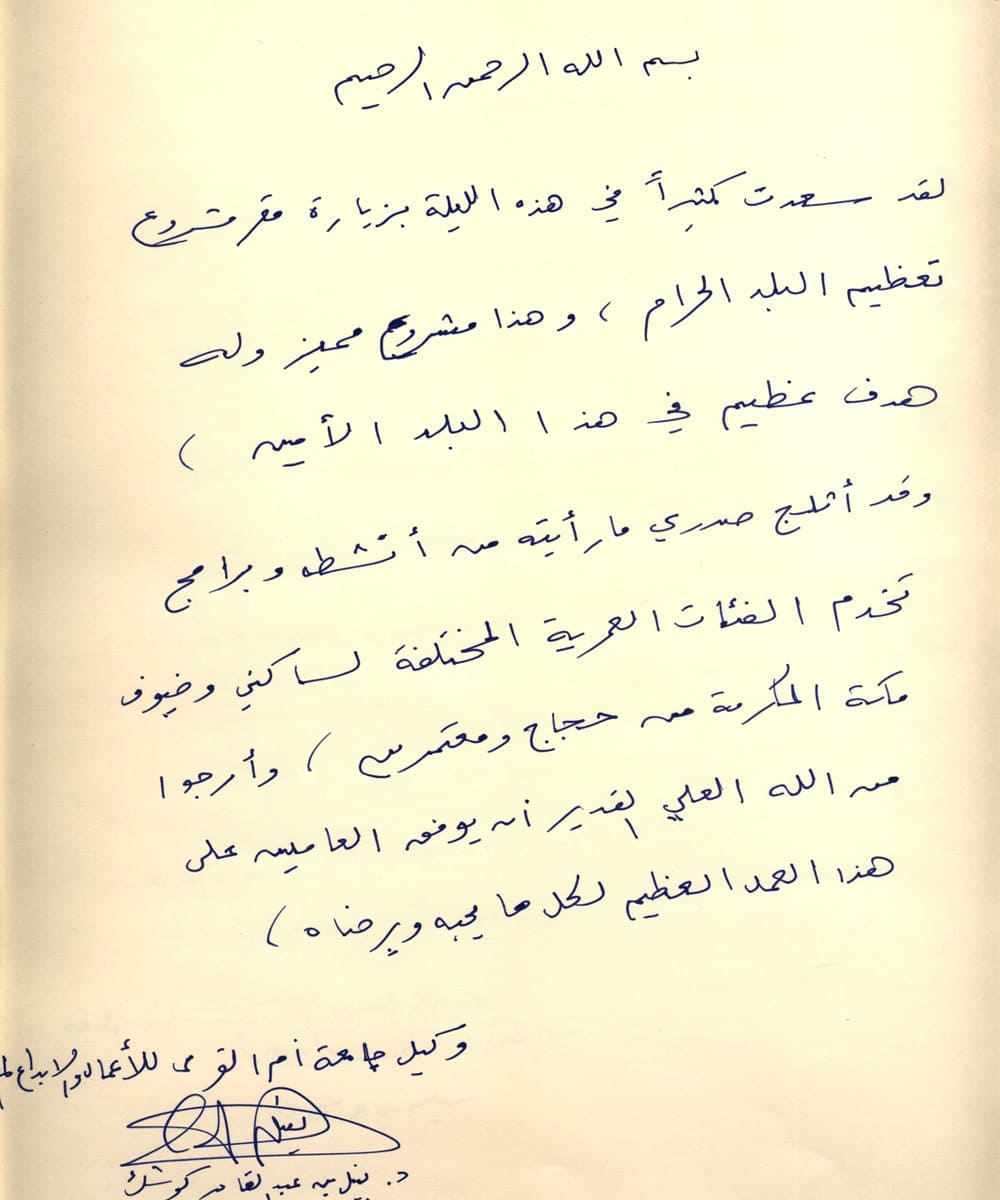 بسم الله الرحمن الرحيم
لقد سعدت كثيراً في هذه الليلة بزيارة مقر مشروع
تعظيم البلد الحرام ، وهذا مشروع مميز وله
هدف عظيم في هذا البلد الأمين ،
وقد أثلج صدري ما رأيته من أنشطه وبرامج
تخدم الفئات العمرية المختلفة لساكني وضيوف
مكة المكرمة من حجاج ومعتمرين ، وأرجوا
من الله العلي القدير أن يوفق العاملين على
هذا العمل العظيم لكل ما يحبه ويرضاه ،
وكيل جامعة أم القرى للأعمال والإبداع
نبيل
د. نبيل بن عبد القادر كوشك